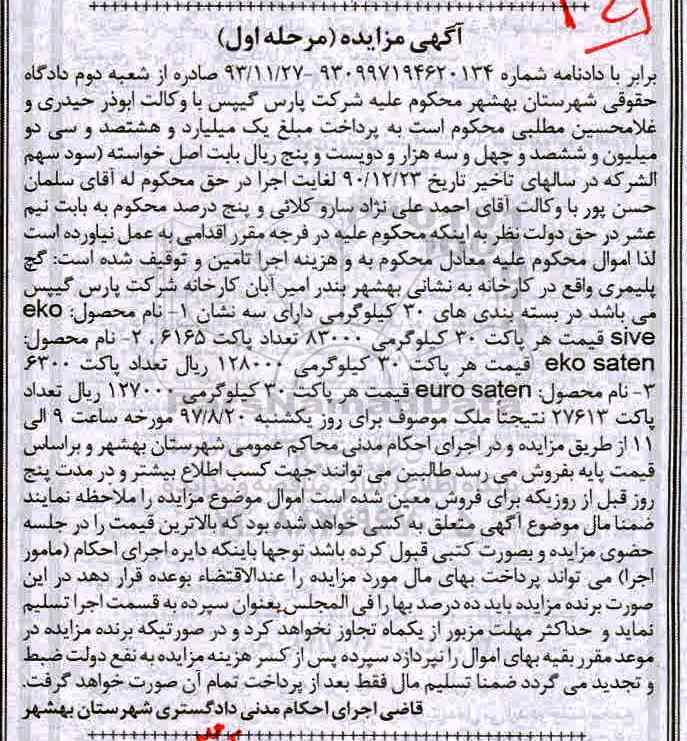 آگهی مزایده (مرحله اول)
برابر با دادنامه شماره ۹۳۰۹۹۷۱۹۴۶۲۰۱۳۴ -۹۳/۱۱/۲۷ صادره از شعبه دوم دادگاه
حقوقی شهرستان بهشهر محکوم علیه شرکت پارس گیپس با وکالت ابوذر حیدری و
غلامحسین مطلبی محکوم است به پرداخت مبلغ یک میلیارد و هشتصد و سی دو
میلیون و ششصد و چهل و سه هزار و دویست و پنج ریال بابت اصل خواسته (سود سهم
الشرکه در سالهای تاخیر تاریخ ۹۰/۱۲/۲۳ لغایت اجرا در حق محکوم له آقای سلمان
حسن پور با وکالت آقای احمد علی نژاد سارو کلائی و پنج درصد محکوم به بابت نیم
عشر در حق دولت نظر به اینکه محکوم علیه در فرجه مقرر اقدامی به عمل نیاورده است
لذا اموال محکوم علیه معادل محکوم به و هزینه اجرا تامین و توقیف شده است: گچ
پلیمری واقع در کارخانه به نشانی بهشهر بندر امیر آبان کارخانه شرکت پارس گیپس
می باشد در بسته بندی های ۳۰ کیلوگرمی دارای سه نشان ۱- نام محصول: eko
sive قیمت هر پاکت ۳۰ کیلوگرمی ۸۳۰۰۰ تعداد پاکت ۶۱۶۵ ، ۲- نام محصول:
eko saten قیمت هر پاکت ۳۰ کیلوگرمی ۱۲۸۰۰۰ ریال تعداد پاکت ۶۳۰۰
۳- نام محصول: euro saten قیمت هر پاکت ۳۰ کیلوگرمی ۱۲۷۰۰۰ ریال تعداد
پاکت ۲۷۶۱۳ نتیجتاً ملک موصوف برای روز یکشنبه ۹۷/۸/۲۰ مورخه ساعت ۹ الی
۱۱ از طریق مزایده و در اجرای احکام مدنی محاکم عمومی شهرستان بهشهر و براساس
قیمت پایه بفروش می رسد طالبین می توانند جهت کسب اطلاع بیشتر و در مدت پنج
روز قبل از روزیکه برای فروش معین شده است اموال موضوع مزایده را ملاحظه نمایند
ضمنا مال موضوع آگهی متعلق به کسی خواهد شده بود که بالاترین قیمت را در جلسه
حضوی مزایده و بصورت کتبی قبول کرده باشد توجها باینکه دایره اجرای احکام (مامور
اجرا) می تواند پرداخت بهای مال مورد مزایده را عندالاقتضاء بوعده قرار دهد در این
صورت برنده مزایده باید ده درصد بها را فی المجلس بعنوان سپرده به قسمت اجرا تسلیم
نماید و حداکثر مهلت مزبور از یکماه تجاوز نخواهد کرد و در صورتیکه برنده مزایده در
موعد مقرر بقیه بهای اموال را نپردازد سپرده پس از کسر هزینه مزایده به نفع دولت ضبط
و تجدید می گردد ضمنا تسلیم مال فقط بعد از پرداخت تمام آن صورت خواهد گرفت.
قاضی اجرای احکام مدنی دادگستری شهرستان بهشهر